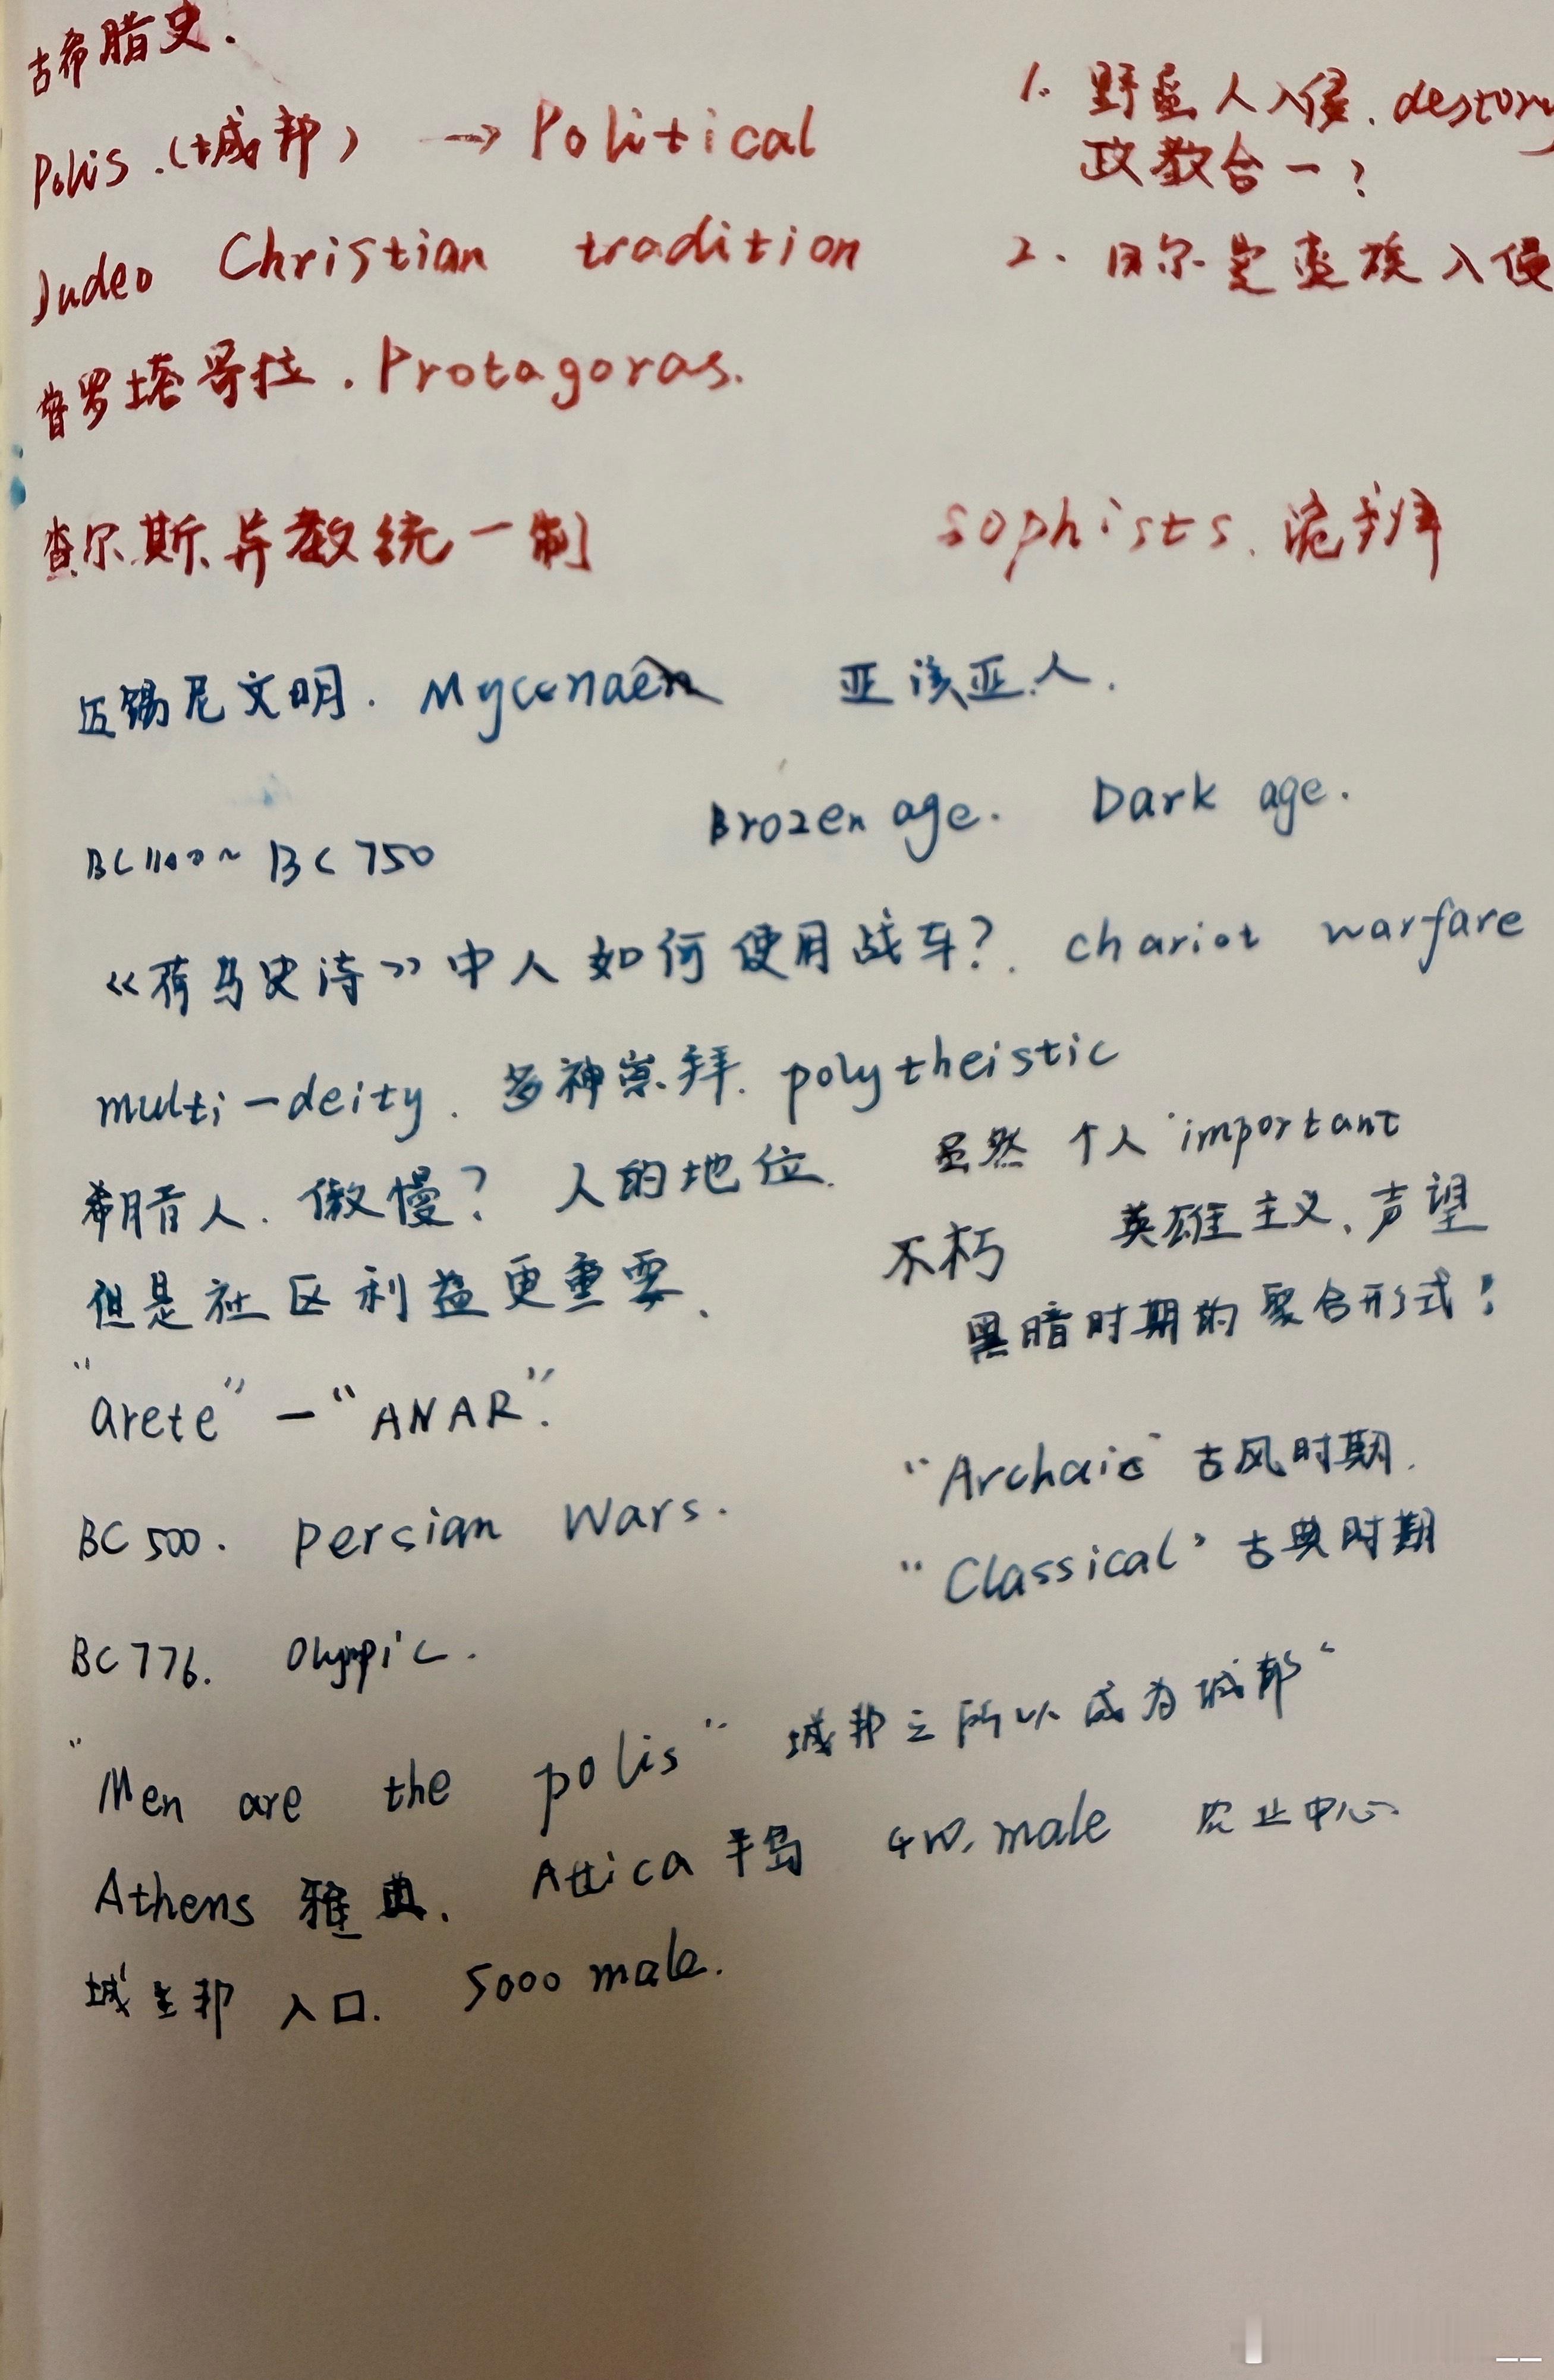 古希腊史.
Polis.(城邦) → Political
1. 野蛮人入侵. destory
政教合一?
Judeo Christian tradition
2. 日尔曼蛮族入侵
普罗塔哥拉. Protagoras.
查尔斯 异教统一制
sophists. 诡辩
迈锡尼文明. Mycenaen 亚该亚人.
Brozen age. Dark age.
BC1100~BC750
《荷马史诗》中人如何使用战车?. chariot warfare
multi-deity. 多神崇拜. polytheistic
希腊人. 傲慢? 人的地位. 虽然 个人 important
不朽 英雄主义、声望
但是社区利益更重要、
黑暗时期的聚合形式:
"arete" — "ANAR".
"Archaic" 古风时期.
BC 500. persian Wars.
"Classical" 古典时期
BC 776. Olympic.
"Men are the polis" 城邦之所以成为城邦"
Athens 雅典. Attica 半岛 male 农业中心.
城邦 人口. 5000 male.